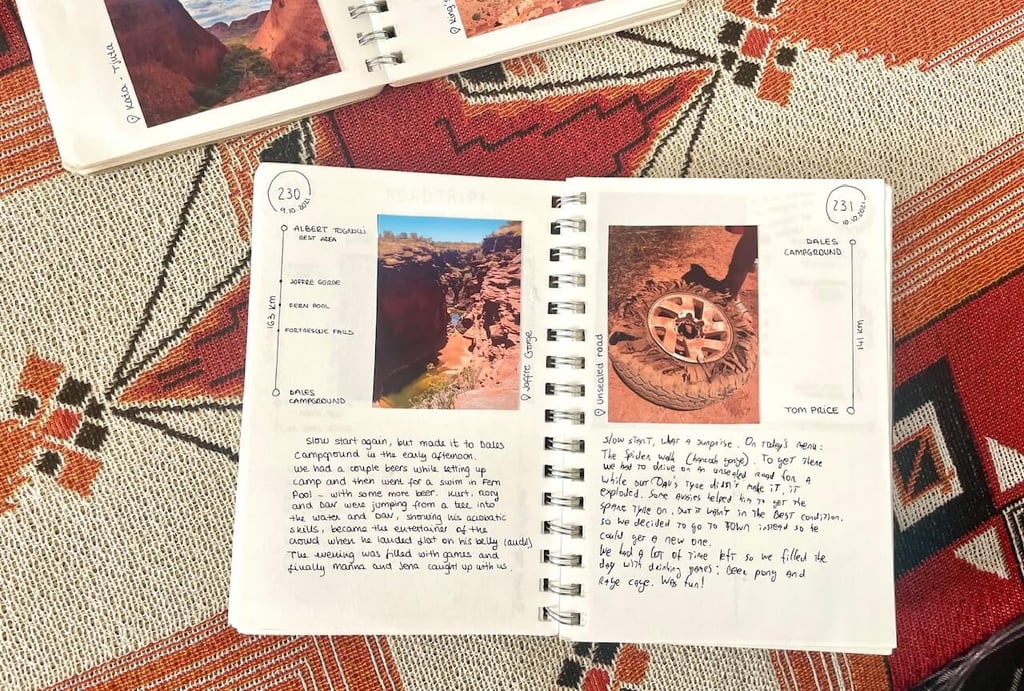 Kata - Tjuta
King
230
9.10.2021
ALBERT TOGNOLLI
REST AREA
JOFFRE GORGE
FERN POOL
FORTRESQUE FALLS
163 KM
DALES
CAMPGROUND
Joffre Gorge
Slow start again, but made it to Dales
campground in the early afternoon.
We had a couple beers while setting up
camp and then went for a swim in Fern
Pool - with some more beer. Kurt, Rory
and Dav were jumping from a tree into
the water and Dav, showing his acrobatic
skills, became the entertainer of the
crowd when he landed flat on his belly (auds)
The evening was filled with games and
finally Manna and Jena caught up with us.
231
10.10.2021
DALES
CAMPGROUND
141 KM
TOM PRICE
Unsealed road
Slow start, what a surprise. On today's menu:
The Spider walk (Hancock gorge). To get there
we had to drive on an unsealed road for a
while our Dav's tyre didn't make it, it
exploded. Some Aussies helped him to get the
spare tyre on, but it wasn't in the best condition.
so we decided to go to TOWN instead so he
could get a new one.
We had a lot of time left so we filled the
day with drinking games: Beer pong and
Rage cage. Was fun!